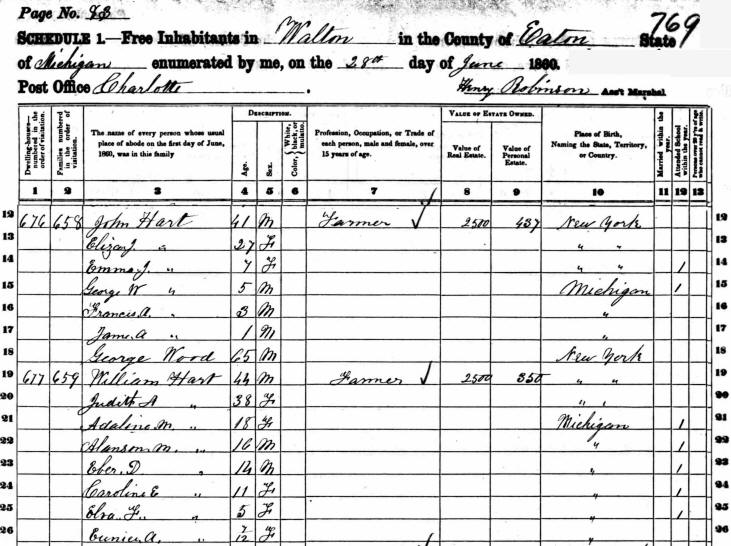 Page No. 83
769
SCHEDULE 1.—Free Inhabitants in Walton in the County of Eaton State
of Michigan enumerated by me, on the 28th day of June 1860.
Post Office Charlotte . Henry Robinson Ass't Marshal
Dwelling-houses—numbered in the order of visitation.
Families numbered in the order of visitation.
The name of every person whose usual place of abode on the first day of June, 1860, was in this family
DESCRIPTION.
Age.
Sex.
Color, White, black, or mulatto.
Profession, Occupation, or Trade of each person, male and female, over 15 years of age.
VALUE OF ESTATE OWNED.
Value of Real Estate.
Value of Personal Estate.
Place of Birth, Naming the State, Territory, or Country.
Married within the year.
Attended School within the year.
Persons over 20 y'rs of age who cannot read & write.
1 2 3 4 5 6 7 8 9 10 11 12 13
12 676 658 John Hart 41 M Farmer ✓ 2500 437 New York 12
13 Eliza J. " 27 F " " 13
14 Emma J. " 7 F " " 1 14
15 George W " 5 M Michigan 1 15
16 Francis A. " 3 M " 16
17 James A " 1 M " 17
18 George Wood 65 M New York 18
19 677 659 William Hart 44 M Farmer ✓ 2500 350 " " 19
20 Judith A " 38 F " " 20
21 Adaline M. " 18 F Michigan 1 21
22 Alanson M. " 16 M " 1 22
23 Eber. D " 14 M " 1 23
24 Caroline E " 11 F " 1 24
25 Elva F. " 5 F " 1 25
26 Eunice A. " 7/12 F " 26